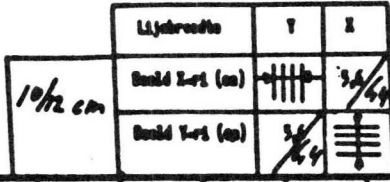 Lijnbreedte Y X
10/12 cm
Beeld X-ri (cm) 5,6/4,4
Beeld Y-ri (cm) 5,6/4,4